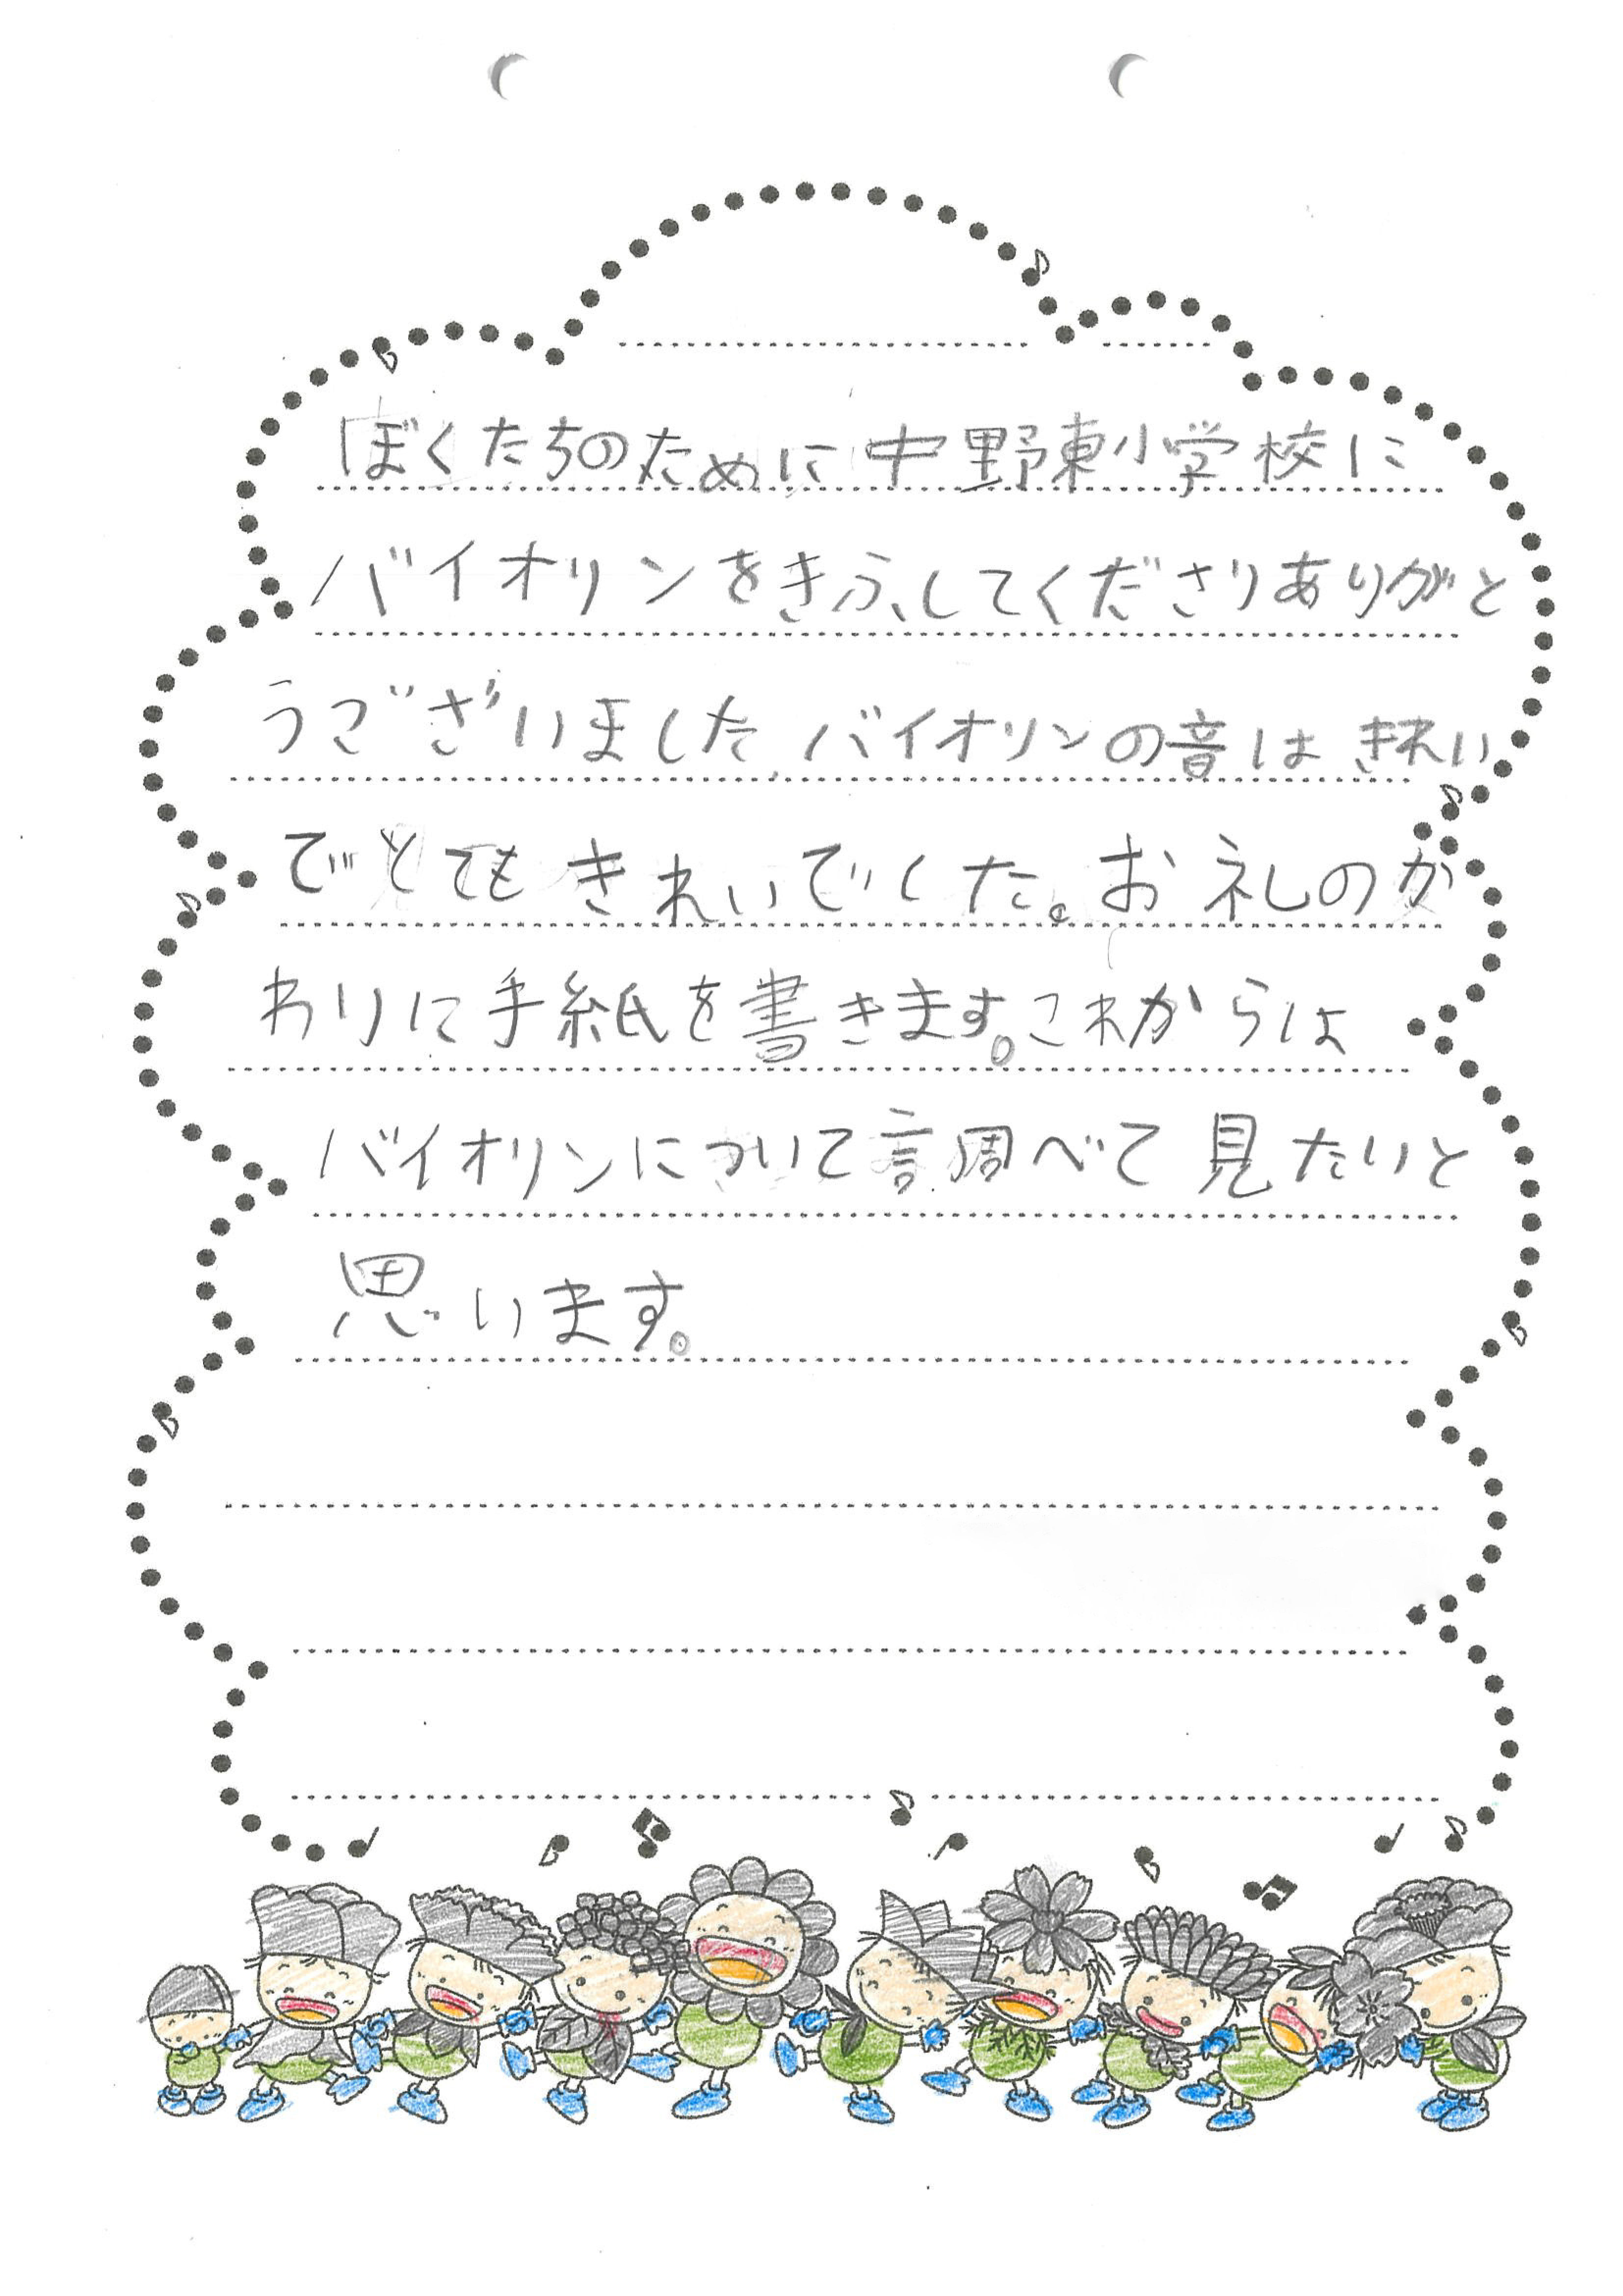 ぼくたちのために中野東小学校に
バイオリンをきふしてくださりありがと
うございました。バイオリンの音はきれい
でとてもきれいでした。お礼のか
わりに手紙を書きます。これからは
バイオリンについて調べて見たいと
思います。